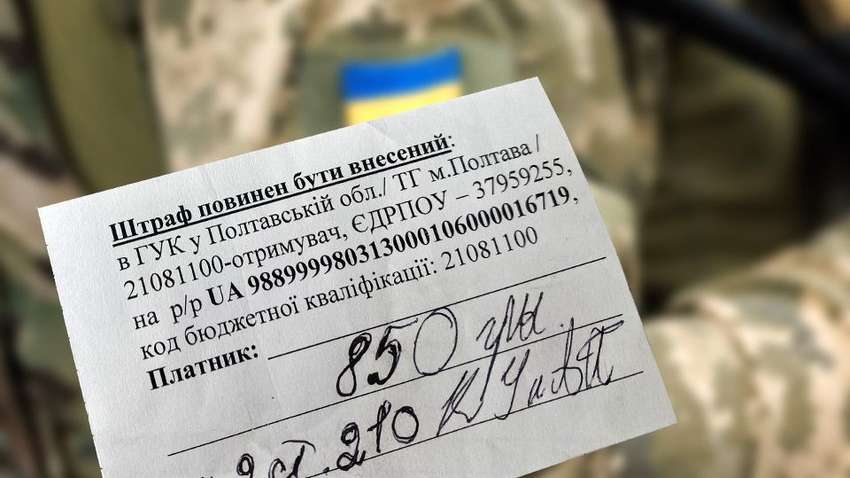 Штраф повинен бути внесений:
в ГУК у Полтавській обл./ ТГ м.Полтава /
21081100-отримувач, ЄДРПОУ – 37959255,
на р/р UA 988999980313000106000016719,
код бюджетної кваліфікації: 21081100
Платник:
850 грн.
ст.210 КУпАП